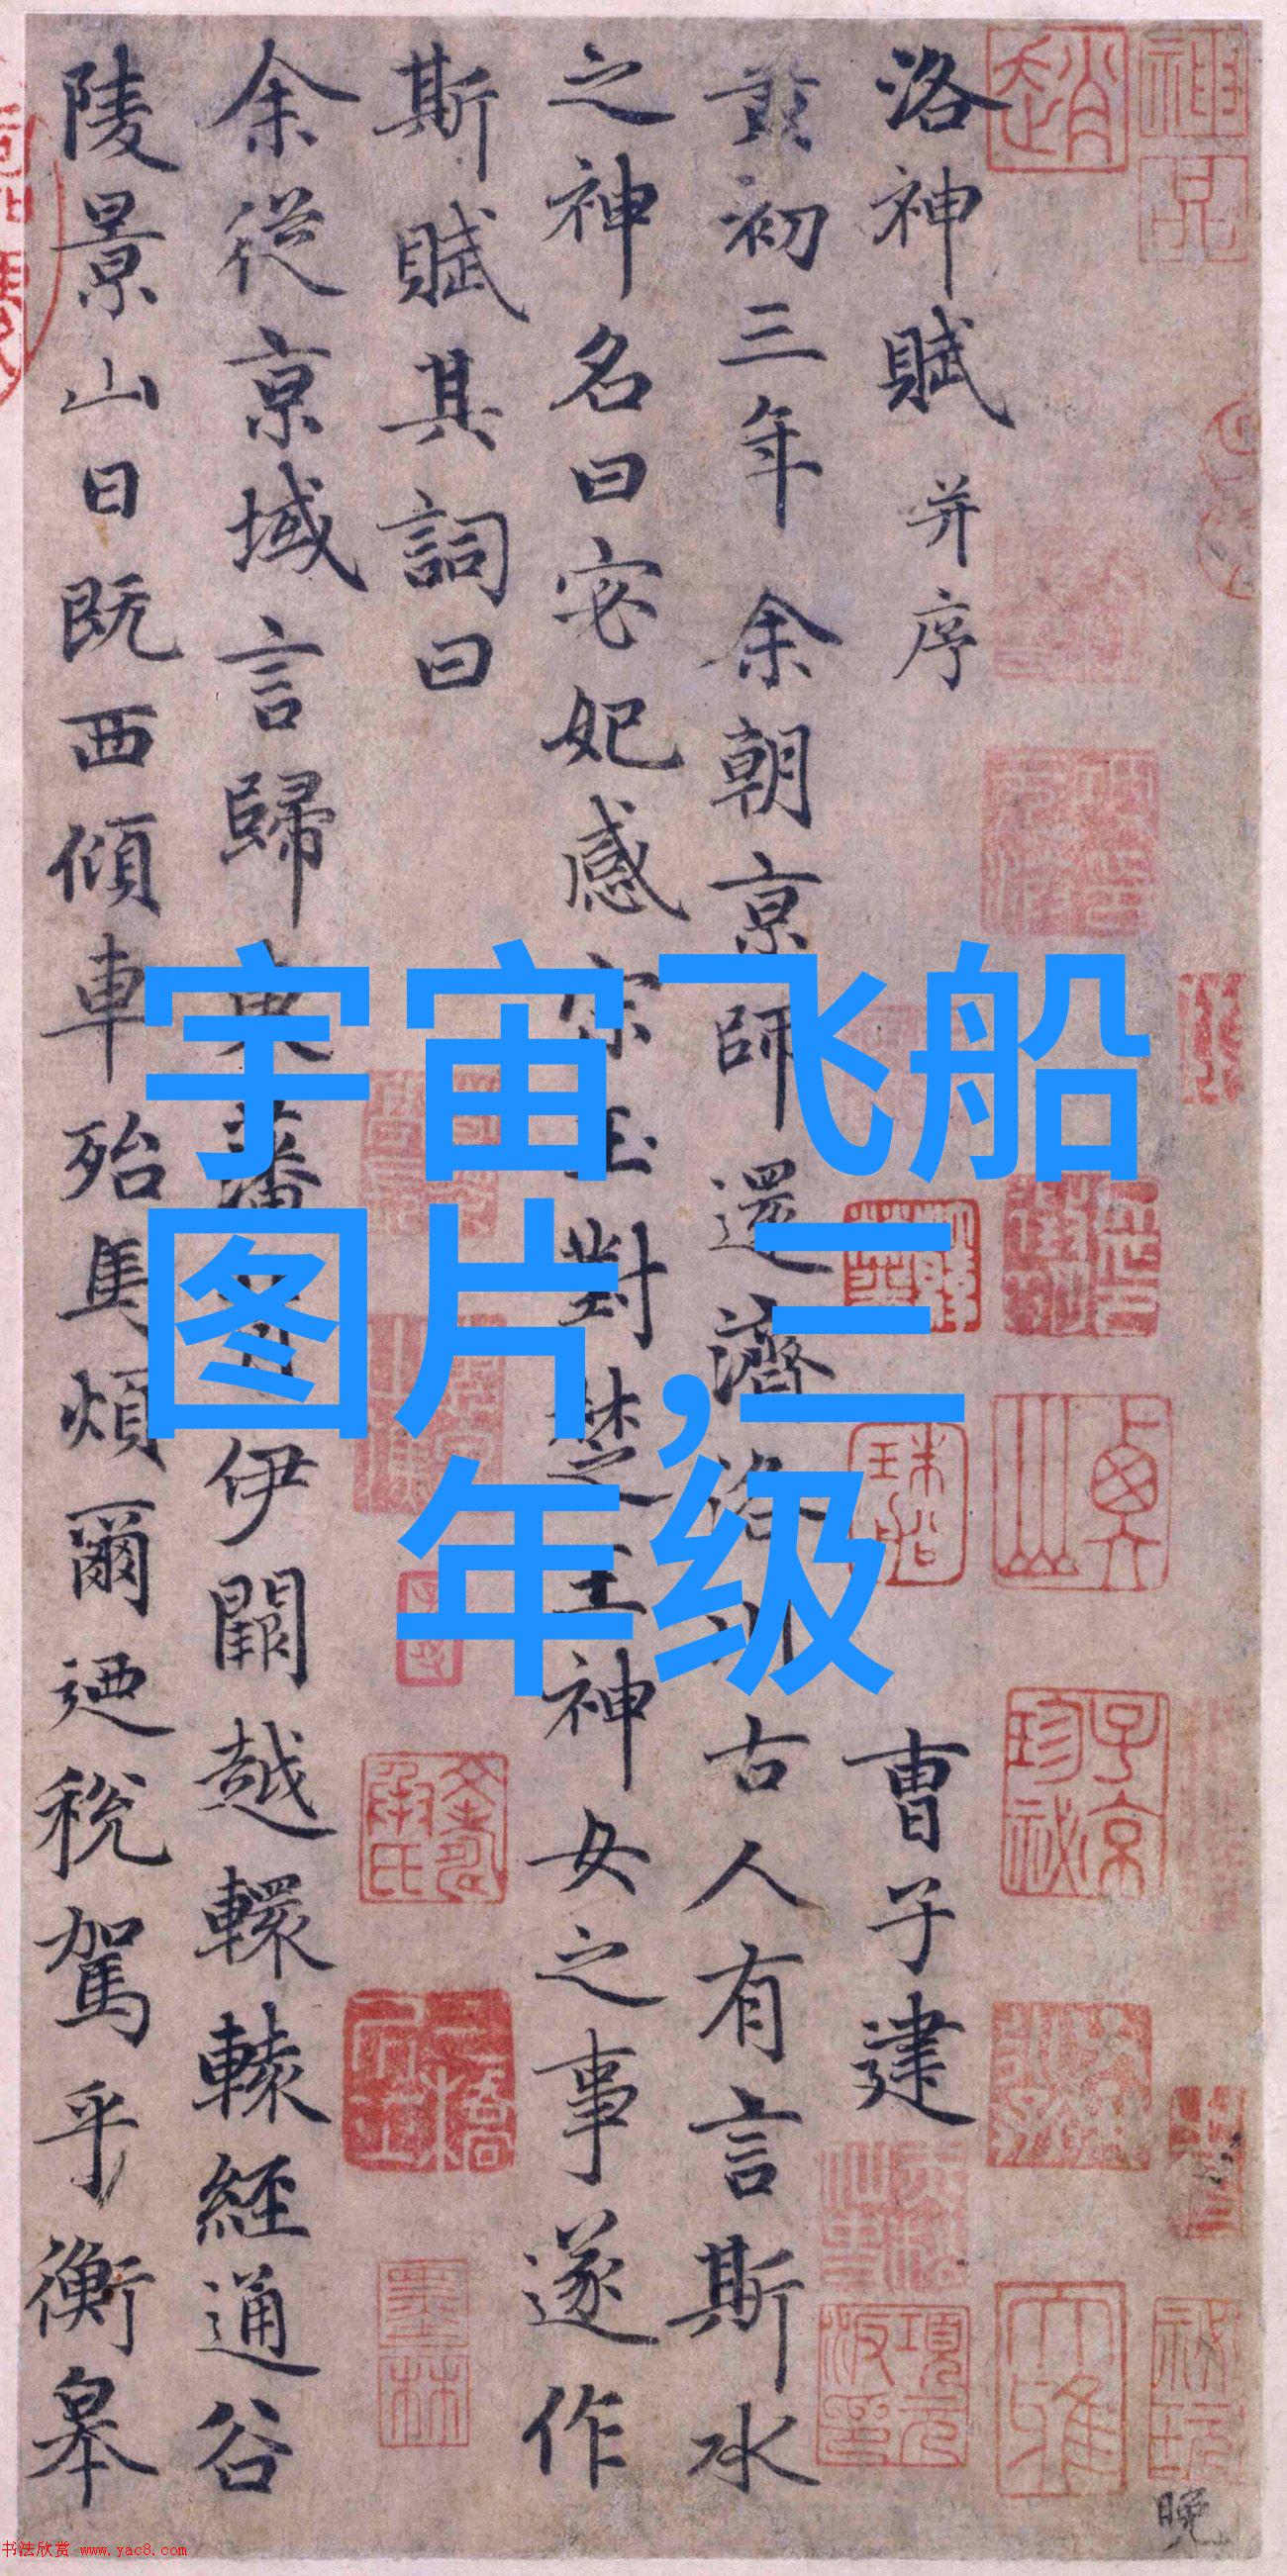 宇宙飞船
图片,三
年级
洛神賦 并序 曹子建
黃初三年余朝京師還濟洛川古人有言斯水
之神名曰宓妃感宋玉對楚王神女之事遂作
斯賦其詞曰
余從京域言歸東藩伊闕越轘轅經通谷
陵景山日既西傾車殆馬煩爾迺稅駕乎衡皋
趙
神品
子京珍秘
項元汴印
墨林
大雅
晚
书法欣赏 www.yac8.com